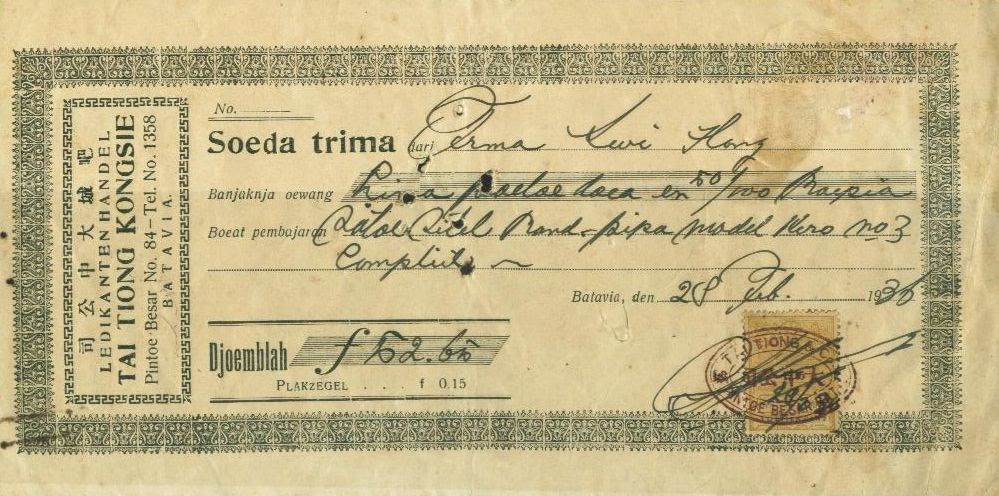 吧城大中公司
LEDIKANTENHANDEL
TAI TIONG KONGSIE
Pintoe Besar No. 84 – Tel. No. 1358
BATAVIA.
No.
Soeda trima dari Kwi Hong
Banjaknja oewang Lima poeloe doea en 50/100 Roepia
Boeat pembajaran Satoe Stel Rand-pipa model Kero no 3
Complit
Batavia, den 28 Feb. 1936
Djoemblah f 52.65
PLAKZEGEL . . . . f 0.15